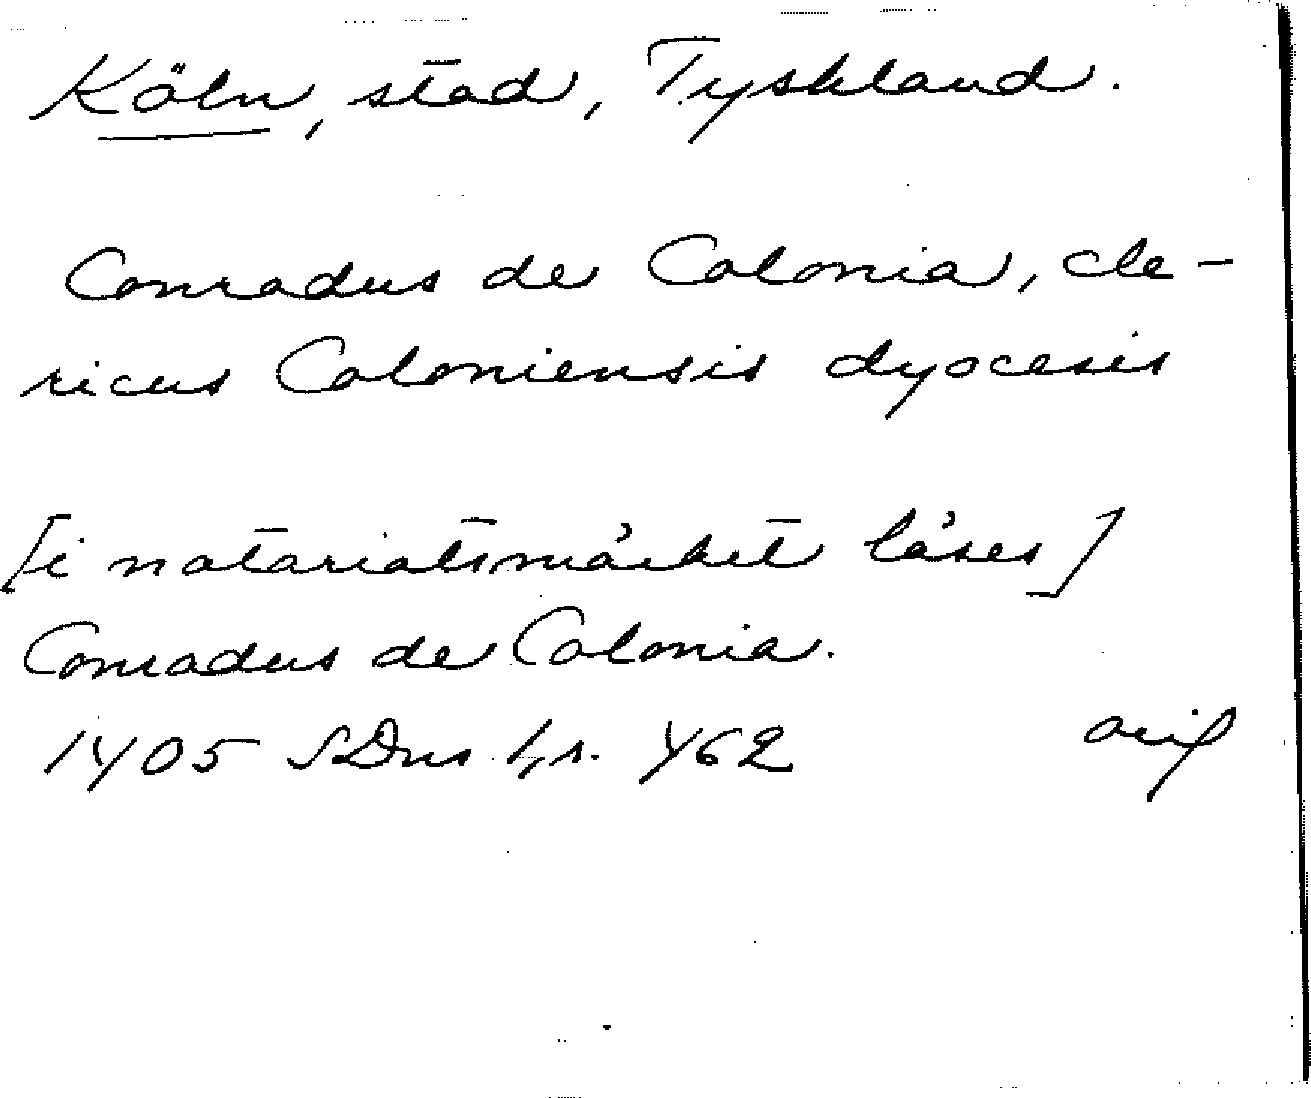 Köln, stad, Tyskland.
Conradus de Colonia, cle-
ricus Coloniensis dyocesis
[i notariatsmärket läses]
Conradus de Colonia.
1405 SDns 1, s. 462 orig